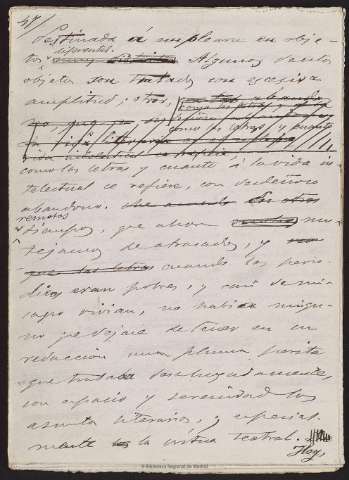 destinada á emplearse en obje-
diferentes.
tos Algunos de estos
objetos son tratados con excesiva
amplitud; otros,
como las letras y cuanto á la vida in-
telectual se refiere, con desdeñoso
abandono.
remotos
tiempos, que ahora mo-
tejamos de atrasados, y
cuando los perió-
dicos eran pobres, y casi de mi-
lagro vivían, no había ningu-
no que dejase de tener en su
redacción una pluma perita
que tratase desahogadamente,
con espacio y serenidad los
asuntos literarios, y especial-
mente la crítica teatral.
Hoy,
Biblioteca Regional de Madrid